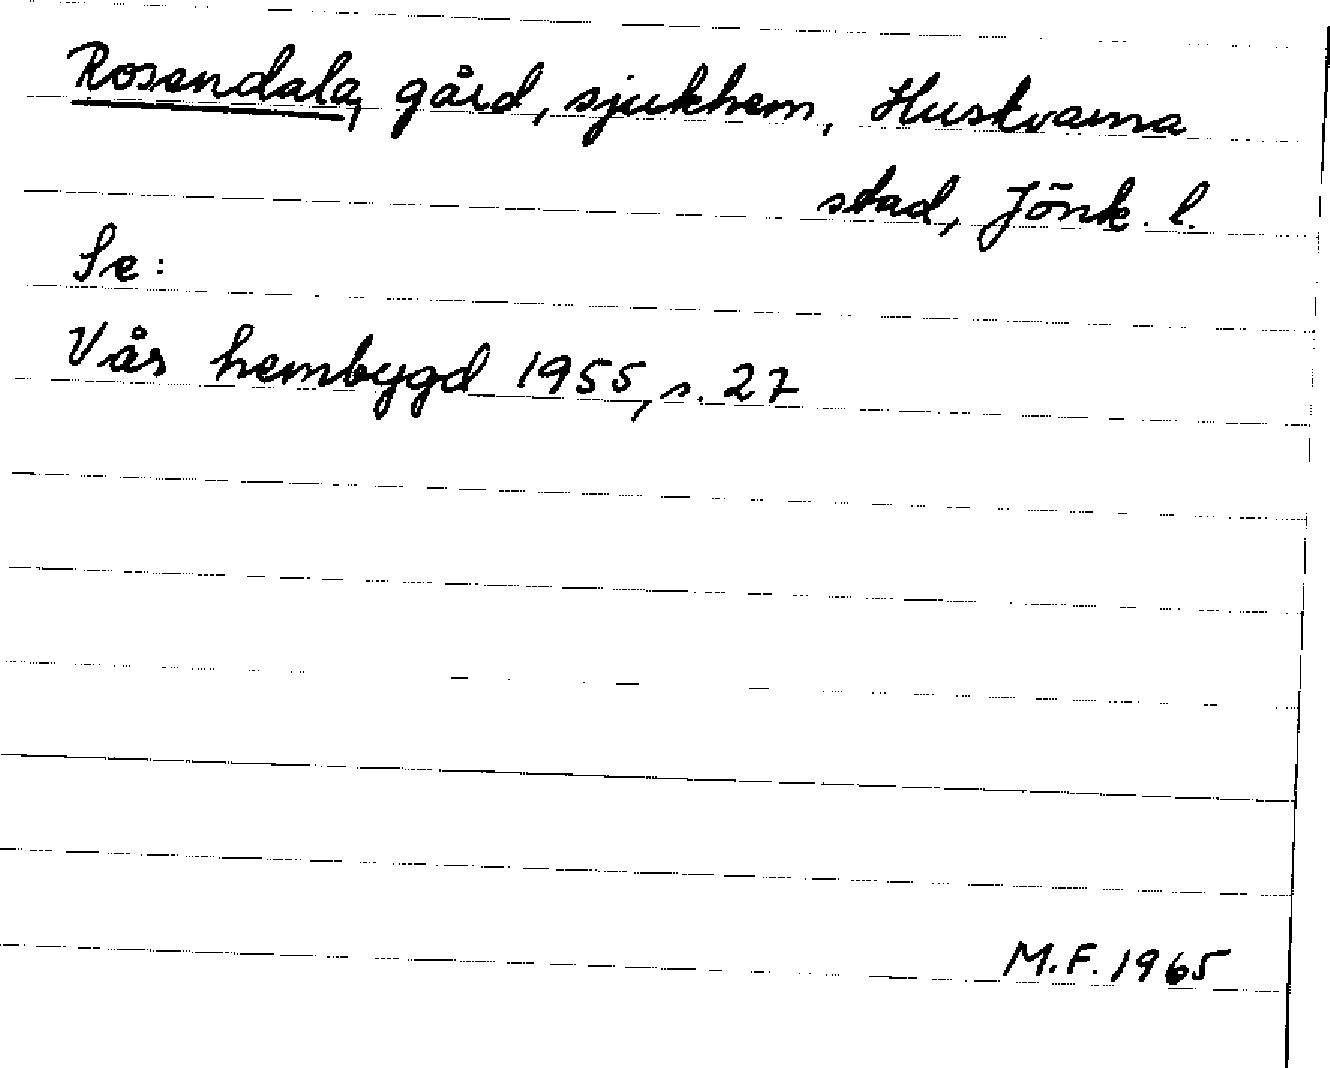 Rosendala, gård, sjukhem, Huskvarna
stad, Jönk. l.
Se:
Vår hembygd 1955, s. 27
M.F. 1965